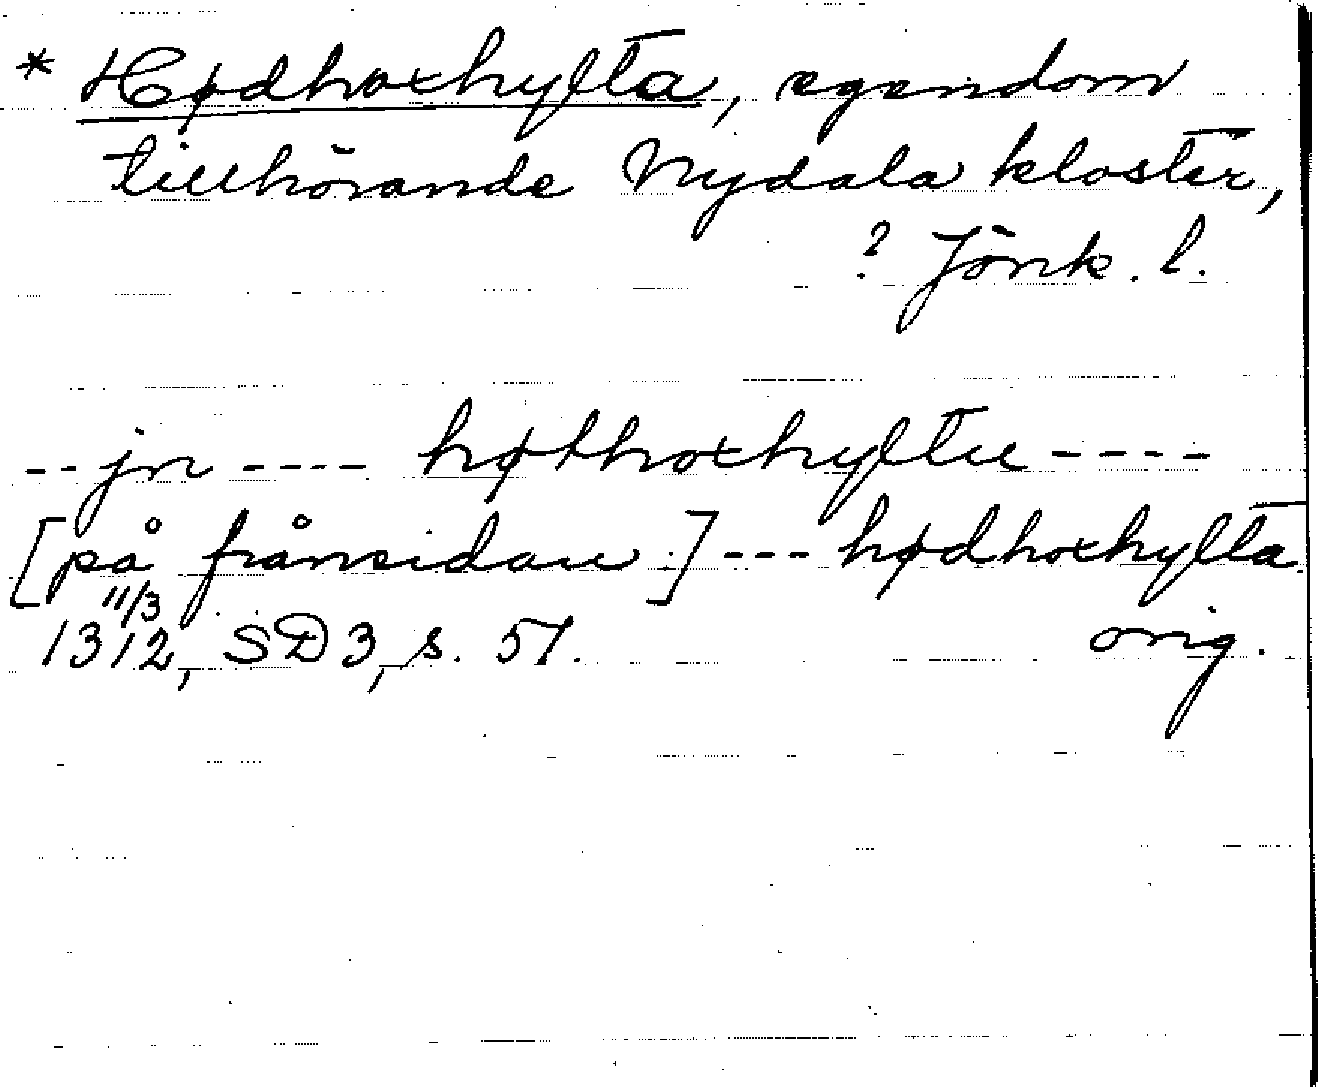 * Hødhoxhylta, egendom
tillhörande Nydala kloster,
? Jönk. l.
-- jn ---- høthoxhyltu ----
[på frånsidan:] --- hødhoxhylta
11/3
1312, SD 3, s. 51. orig.